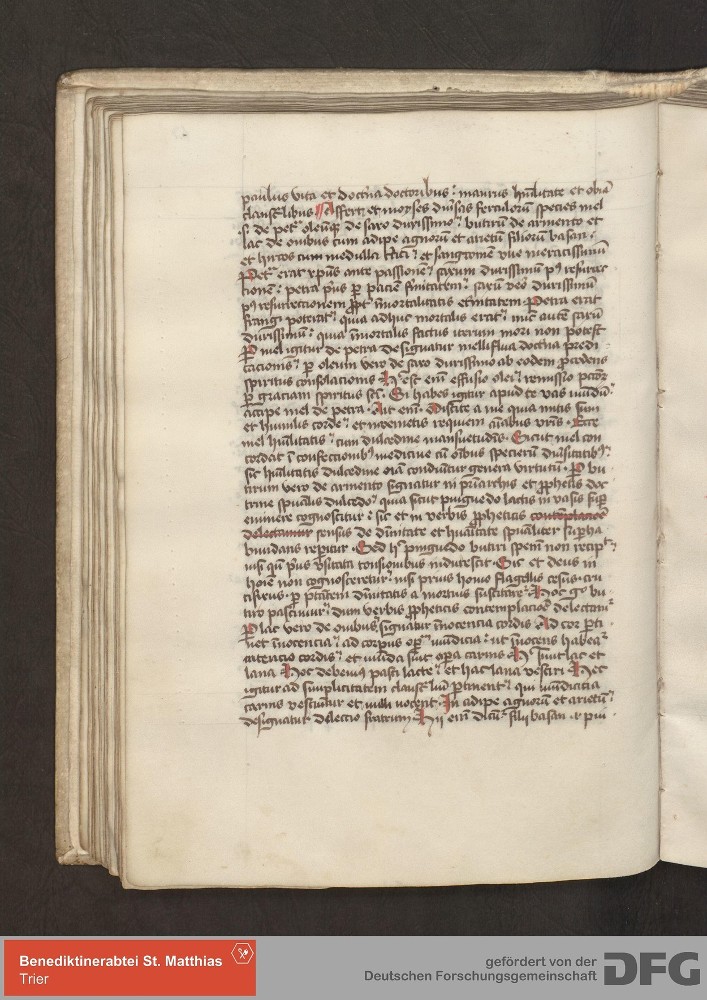 paulus vita et doctrina doctoribus : maurus humilitate et obia
claustralibus Affert et moyses diuersas ferculorum species mel
.s. de petra oleumque de saxo durissimo : butirum de armento et
lac de ouibus cum adipe agnorum et arietum filiorum basan :
et hircos cum medulla tritici : et sanguinem vue meracissimum
Petra erat xpus ante passionem : saxum durissimum post resurrec
tionem : petra prius per
post resurrectionem propter immortalitatis eternitatem Petra erat
frangi poterat : quia adhuc mortalis erat : nunc autem saxum
durissimum : quia immortalis factus iterum mori non potest
Per mel igitur de petra designatur melliflua doctrina predi
cacionis : per oleum vero de saxo durissimo ab eodem procedens
spiritus consolacionis Hec est enim effusio olei : remissio peccatorum
per graciam spiritus sancti . Si habes igitur apud te vas mundum :
accipe mel de petra . Ait enim . Discite a me quia mitis sum
et humilis corde : et inuenietis requiem animabus vestris . Ecce
mel humilitatis : cum dulcedine mansuetudinis . Sicut mel con
cordat in confectionibus medicine cum omnibus specierum diuersitatibus :
sic humilitatis dulcedine omnia condiuntur genera virtutum . Per bu
tirum vero de armento signatur in patriarchis et prophetis doc
trine spiritualis dulcedo : quia sicut pinguedo lactis in vasis semper
eminere cognoscitur : sic et in verbis propheticis contemplacione
delectamur sensus de diuinitate et humanitate spiritualiter superha
bundans reperitur . Sed hec pinguedo butiri spem non recipit :
nisi quam prius versata tonsionibus indurescit . Sic et deus in
homine non cognosceretur : nisi prius homo flagellis cesus . cru
cifixus . per potentiam diuinitatis a mortuis suscitaretur . Hoc ergo bu
tiro pascimur : dum verbis propheticis contemplacione delectamur
Per lac vero de ouibus signatur innocencia cordis . Ad cor perti
net innocencia : ad corpus operum mundicia : ut innocens habeatur
cordis : et munda sint opera carnis . Hec sunt lac et
lana . Hoc debemus pasci lacte : et hac lana vestiri . Hec
igitur ad simplicitatem claustralium pertinent : qui mundicia
carnis vestiuntur et nulli nocent . In adipe agnorum et arietum :
designatur dilectio fratrum . Hii enim dicuntur filii basan .
Benediktinerabtei St. Matthias
Trier
gefördert von der
Deutschen Forschungsgemeinschaft
DFG